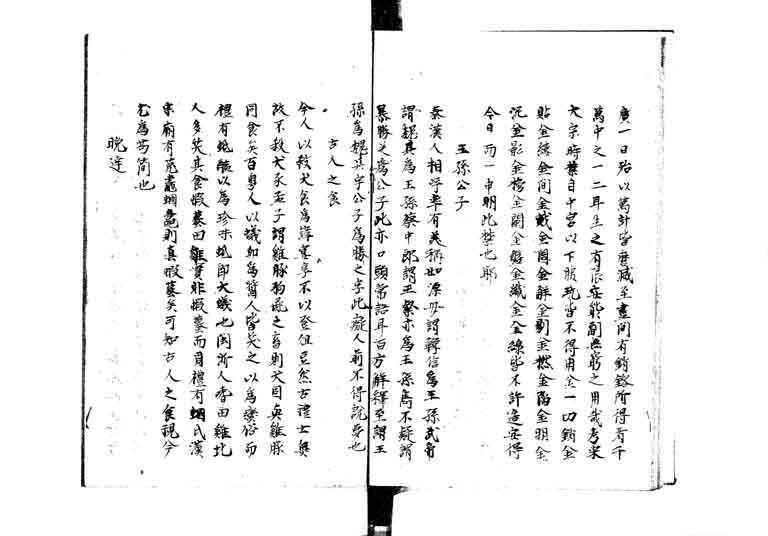 廣一日殆以萬計皆磨滅至盡間有銷鎔所得者千
萬中之一二耳生之有限安能副無窮之用哉考宋
大宗時禁自中宮以下服玩皆不得用金一切銷金
貼金縷金間金戧金圈金解金剔金撚金陷金明金
泥金影金榜金闌金盤金織金金線皆不許造安得
今日而一申明此禁也耶
王孫公子
秦漢人相呼率有美稱如漂母謂韓信為王孫武帝
謂魏其為王孫蔡中郎謂王粲亦為王孫焉不疑謂
暴勝之為公子此亦口頭常語耳百方解釋至謂王
孫為魏其字公子為勝之字此癡人前不得說夢也
古人之食
今人以殺犬食為諱宴享不以登俎豆然古禮士無
故不殺犬豕孟子謂雞豚狗彘之畜則犬固與雞豚
同食矣百粵人以蟻卵為醬人皆笑之以為蠻俗而
禮有蚳醢以為珍味蚳即大蟻也閩浙人食田雞北
人多笑其食蝦蟇田雞實非蝦蟇而周禮有蟈氏漢
宗廟有羔黿蟈黽則真蝦蟇矣可知古人之食視今
尤為苟簡也
晚達